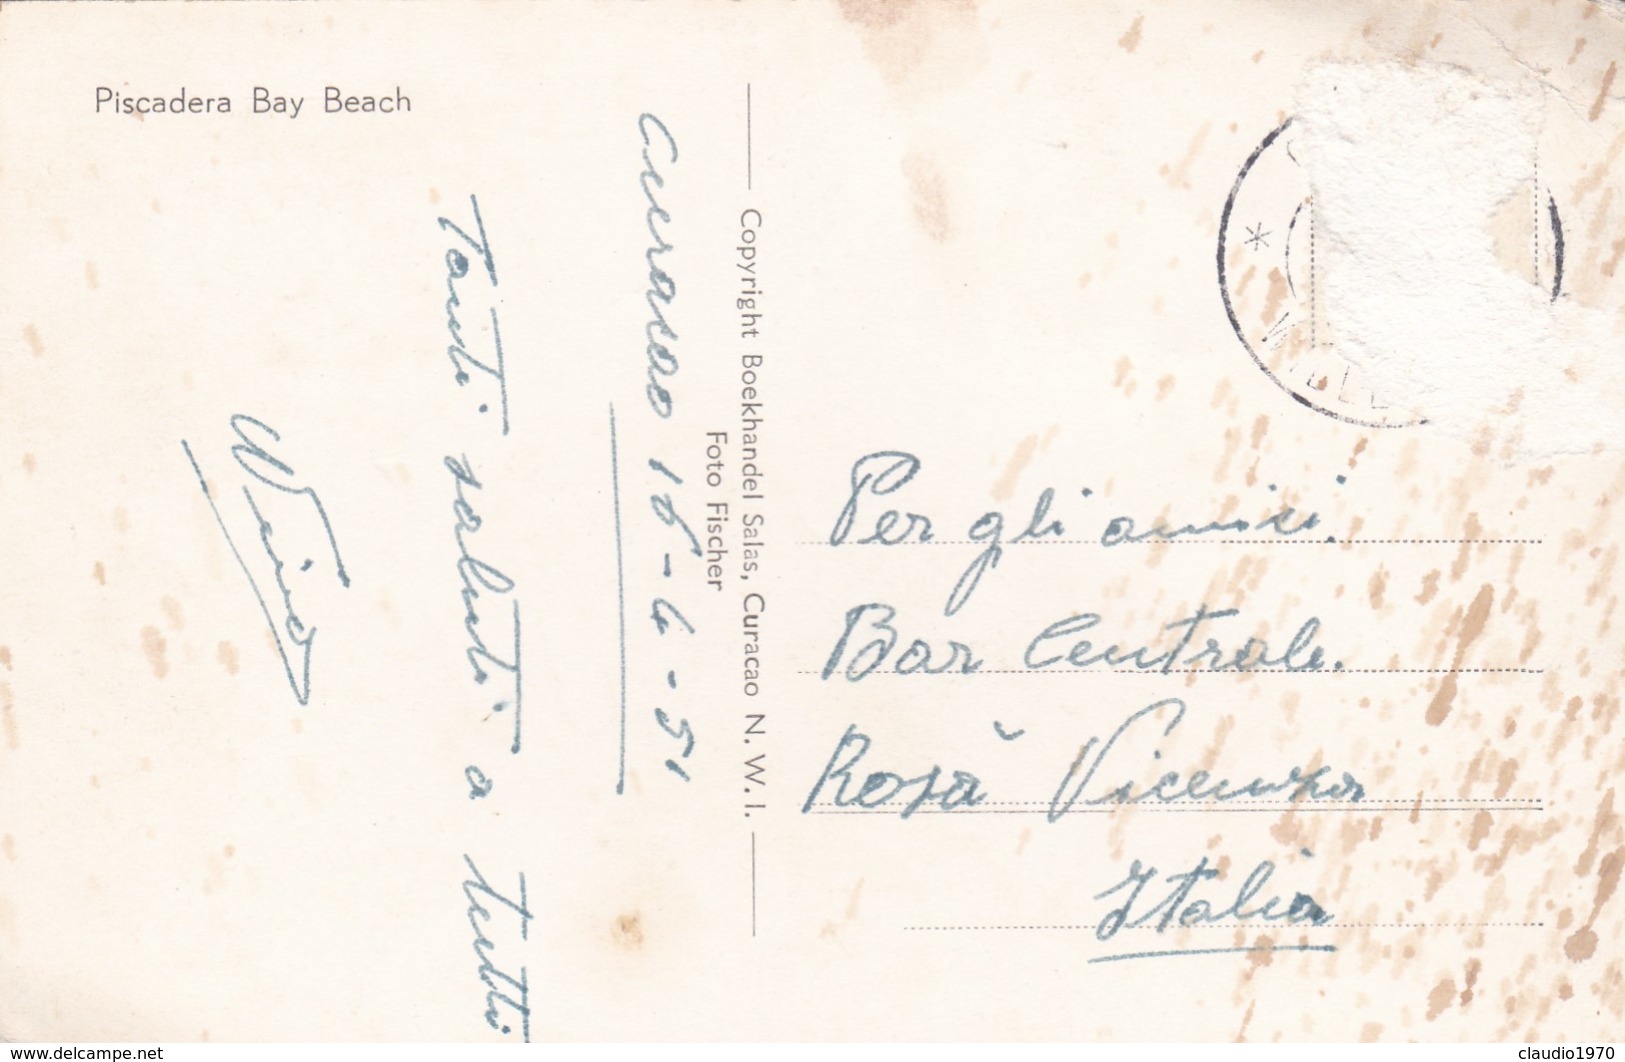 Piscadera Bay Beach
Curacao 16-4-51
Tanti saluti a tutti
Copyright Boekhandel Salas, Curacao N. W. I.
Foto Fischer
Per gli amici
Bar Centrale.
Rosà Vicenza
Italia
WILL
www.delcampe.net
claudio1970